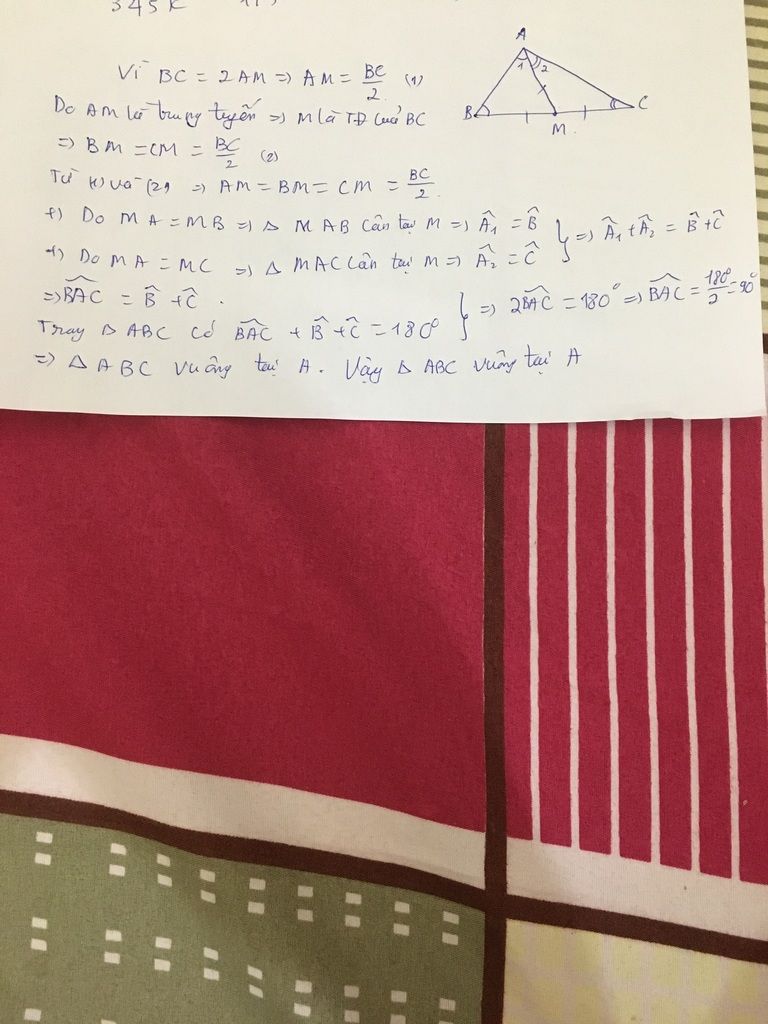 345k
Vì BC = 2AM => AM = BC/2 (1)
Do AM là trung tuyến => M là TĐ của BC
=> BM = CM = BC/2 (2)
Từ (1) và (2) => AM = BM = CM = BC/2
+) Do MA = MB => Δ MAB cân tại M => Â₁ = B̂
+) Do MA = MC => Δ MAC cân tại M => Â₂ = Ĉ } => Â₁ + Â₂ = B̂ + Ĉ
=> BAC = B̂ + Ĉ .
Trong Δ ABC có BAC + B̂ + Ĉ = 180° } => 2BAC = 180° => BAC = 180°/2 = 90°
=> Δ ABC vuông tại A . Vậy Δ ABC vuông tại A
A
1 2
B
M
C